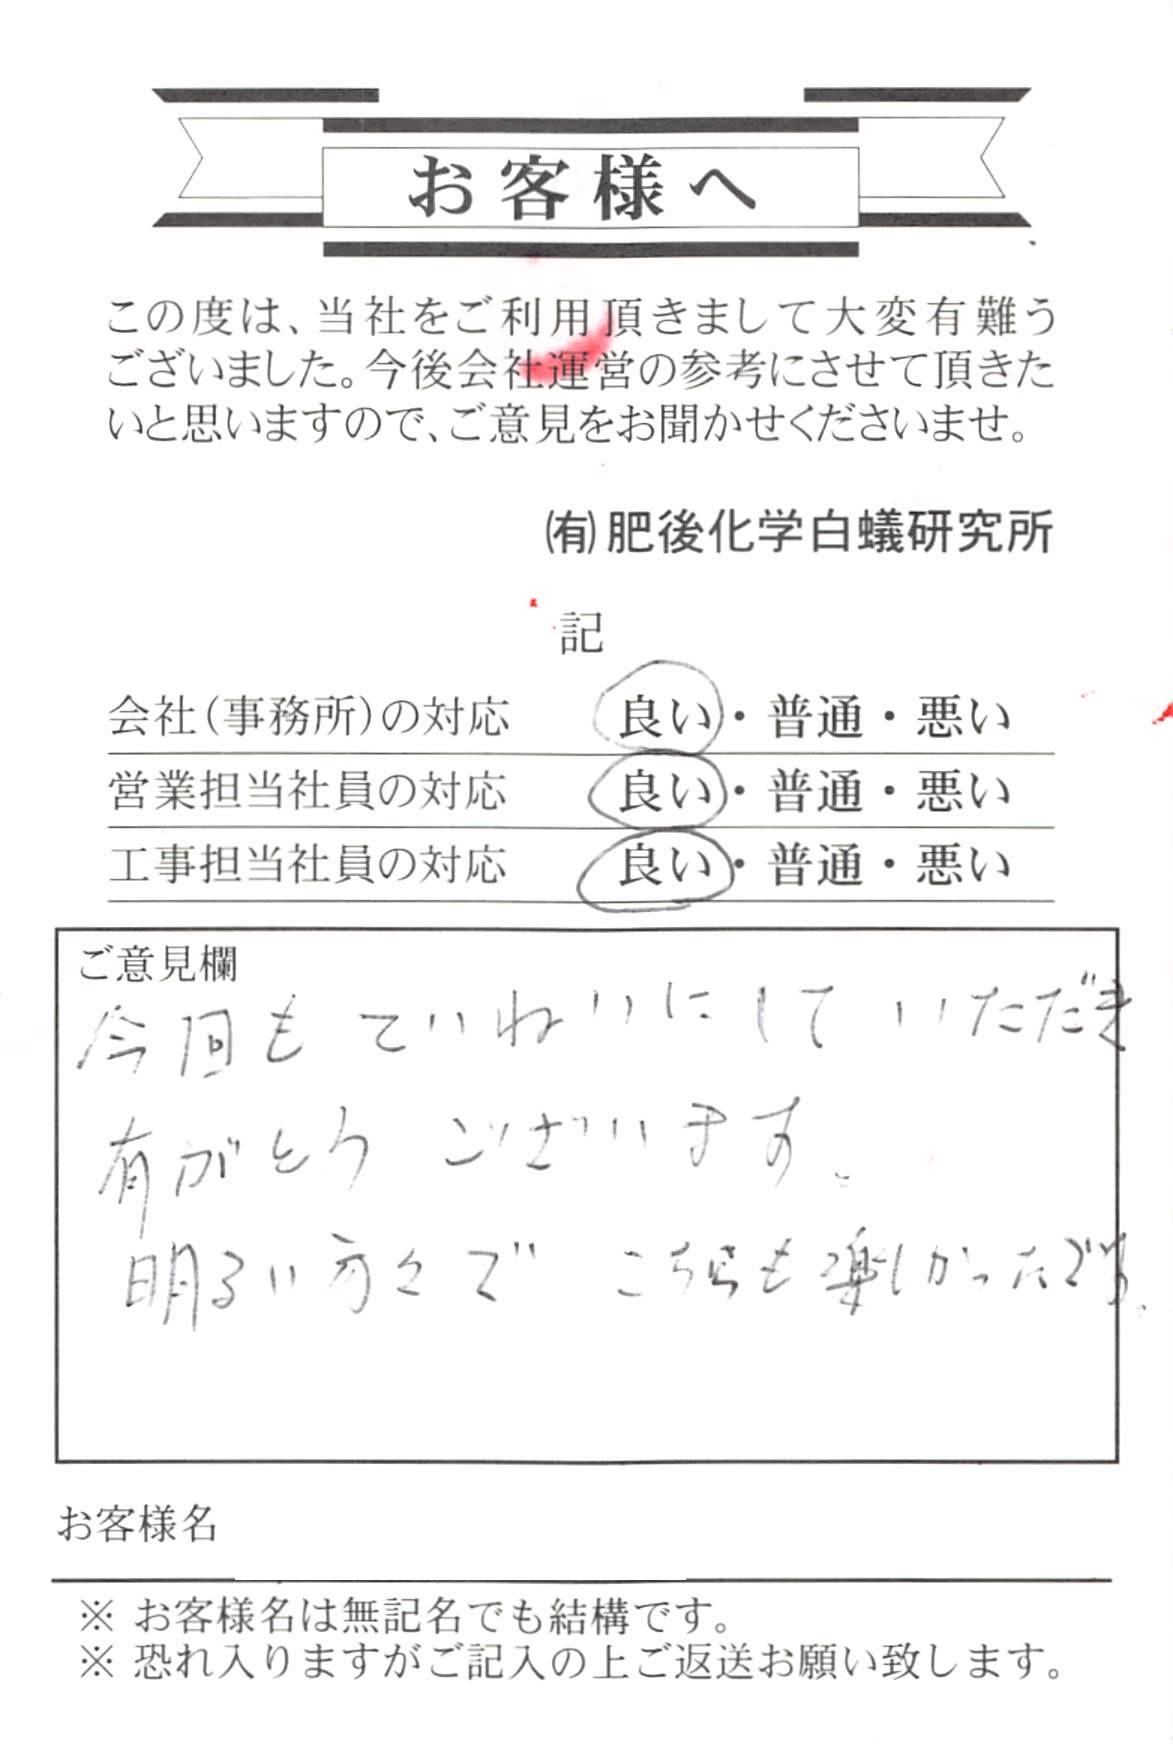 お客様へ
この度は、当社をご利用頂きまして大変有難う
ございました。今後会社運営の参考にさせて頂きた
いと思いますので、ご意見をお聞かせくださいませ。
㈲肥後化学白蟻研究所
記
会社(事務所)の対応 良い・普通・悪い
営業担当社員の対応 良い・普通・悪い
工事担当社員の対応 良い・普通・悪い
ご意見欄
今回もていねいにしていただき
有がとうございます。
明るい方々でこちらも楽しかったです。
お客様名
※ お客様名は無記名でも結構です。
※ 恐れ入りますがご記入の上ご返送お願い致します。